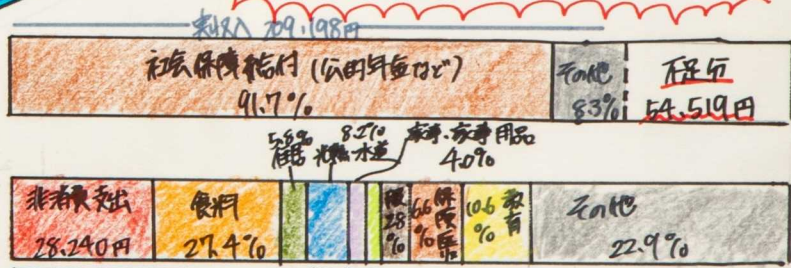 実収入 209,198円
社会保障給付(公的年金など)
91.7%
その他
8.3%
不足分
54,519円
5.8%
住居
8.2%
光熱・水道
家事・家事用品
4.0%
非消費支出
28,240円
食料
27.4%
2.8
%
6.6
%
保険医
10.6
%
教育
その他
22.9%